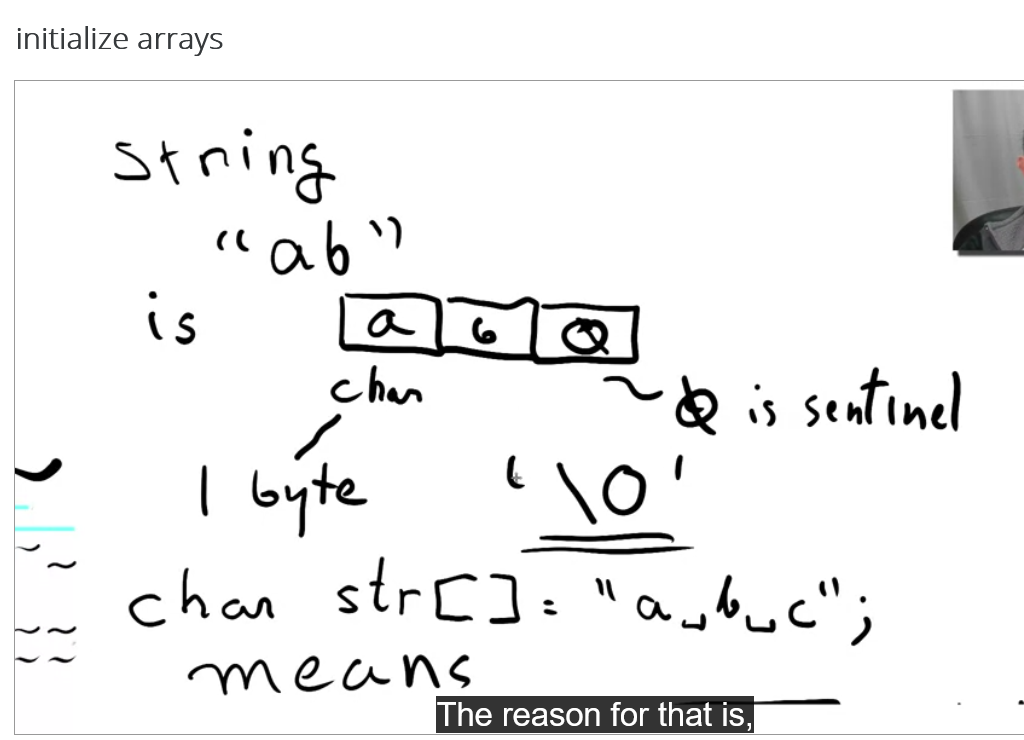 initialize arrays
string
"ab"
is
a b 0
char
~ 0 is sentinel
1 byte '\0'
char str[] = "a␣b␣c";
means
The reason for that is,